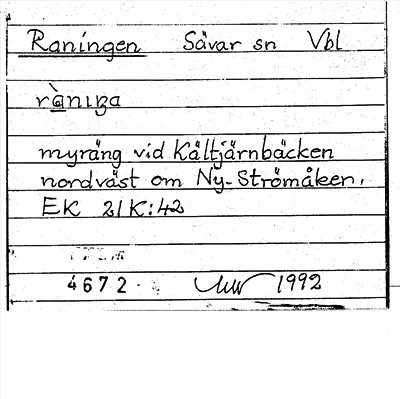 Raningen Sävar sn Vbl
ràniŋa
myräng vid Kåltjärnbäcken
nordväst om Ny-Strömåkern.
EK 21K:42
4672 1992